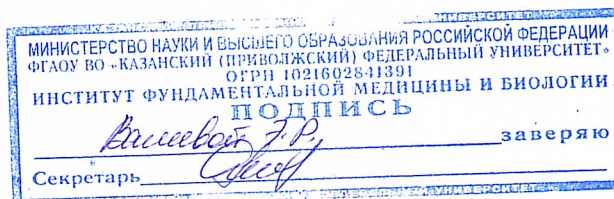 МИНИСТЕРСТВО НАУКИ И ВЫСШЕГО ОБРАЗОВАНИЯ РОССИЙСКОЙ ФЕДЕРАЦИИ
ФГАОУ ВО «КАЗАНСКИЙ (ПРИВОЛЖСКИЙ) ФЕДЕРАЛЬНЫЙ УНИВЕРСИТЕТ»
ОГРН 1021602841391
ИНСТИТУТ ФУНДАМЕНТАЛЬНОЙ МЕДИЦИНЫ И БИОЛОГИИ
ПОДПИСЬ
Валеевой Э.Р.
заверяю
Секретарь